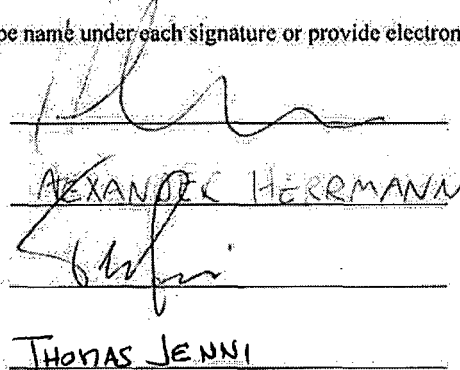 pe name under each signature or provide electron
AEXANDER HERRMANN
THOMAS JENNI